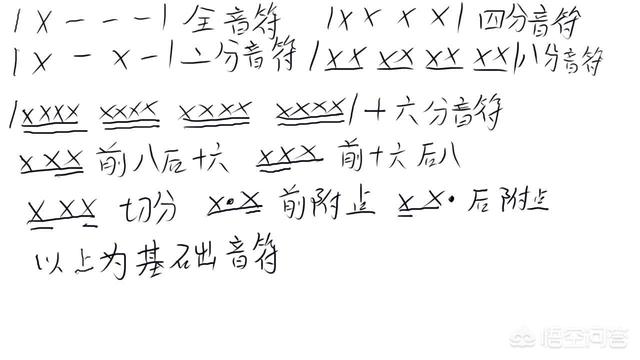 |X---|全音符 |X X X X|四分音符
|X - X -|二分音符 |XX XX XX XX|八分音符
|XXXX XXXX XXXX XXXX|十六分音符
XXX 前八后十六 XXX 前十六后八
XXX 切分 X·X 前附点 XX· 后附点
以上为基础音符
悟空问答